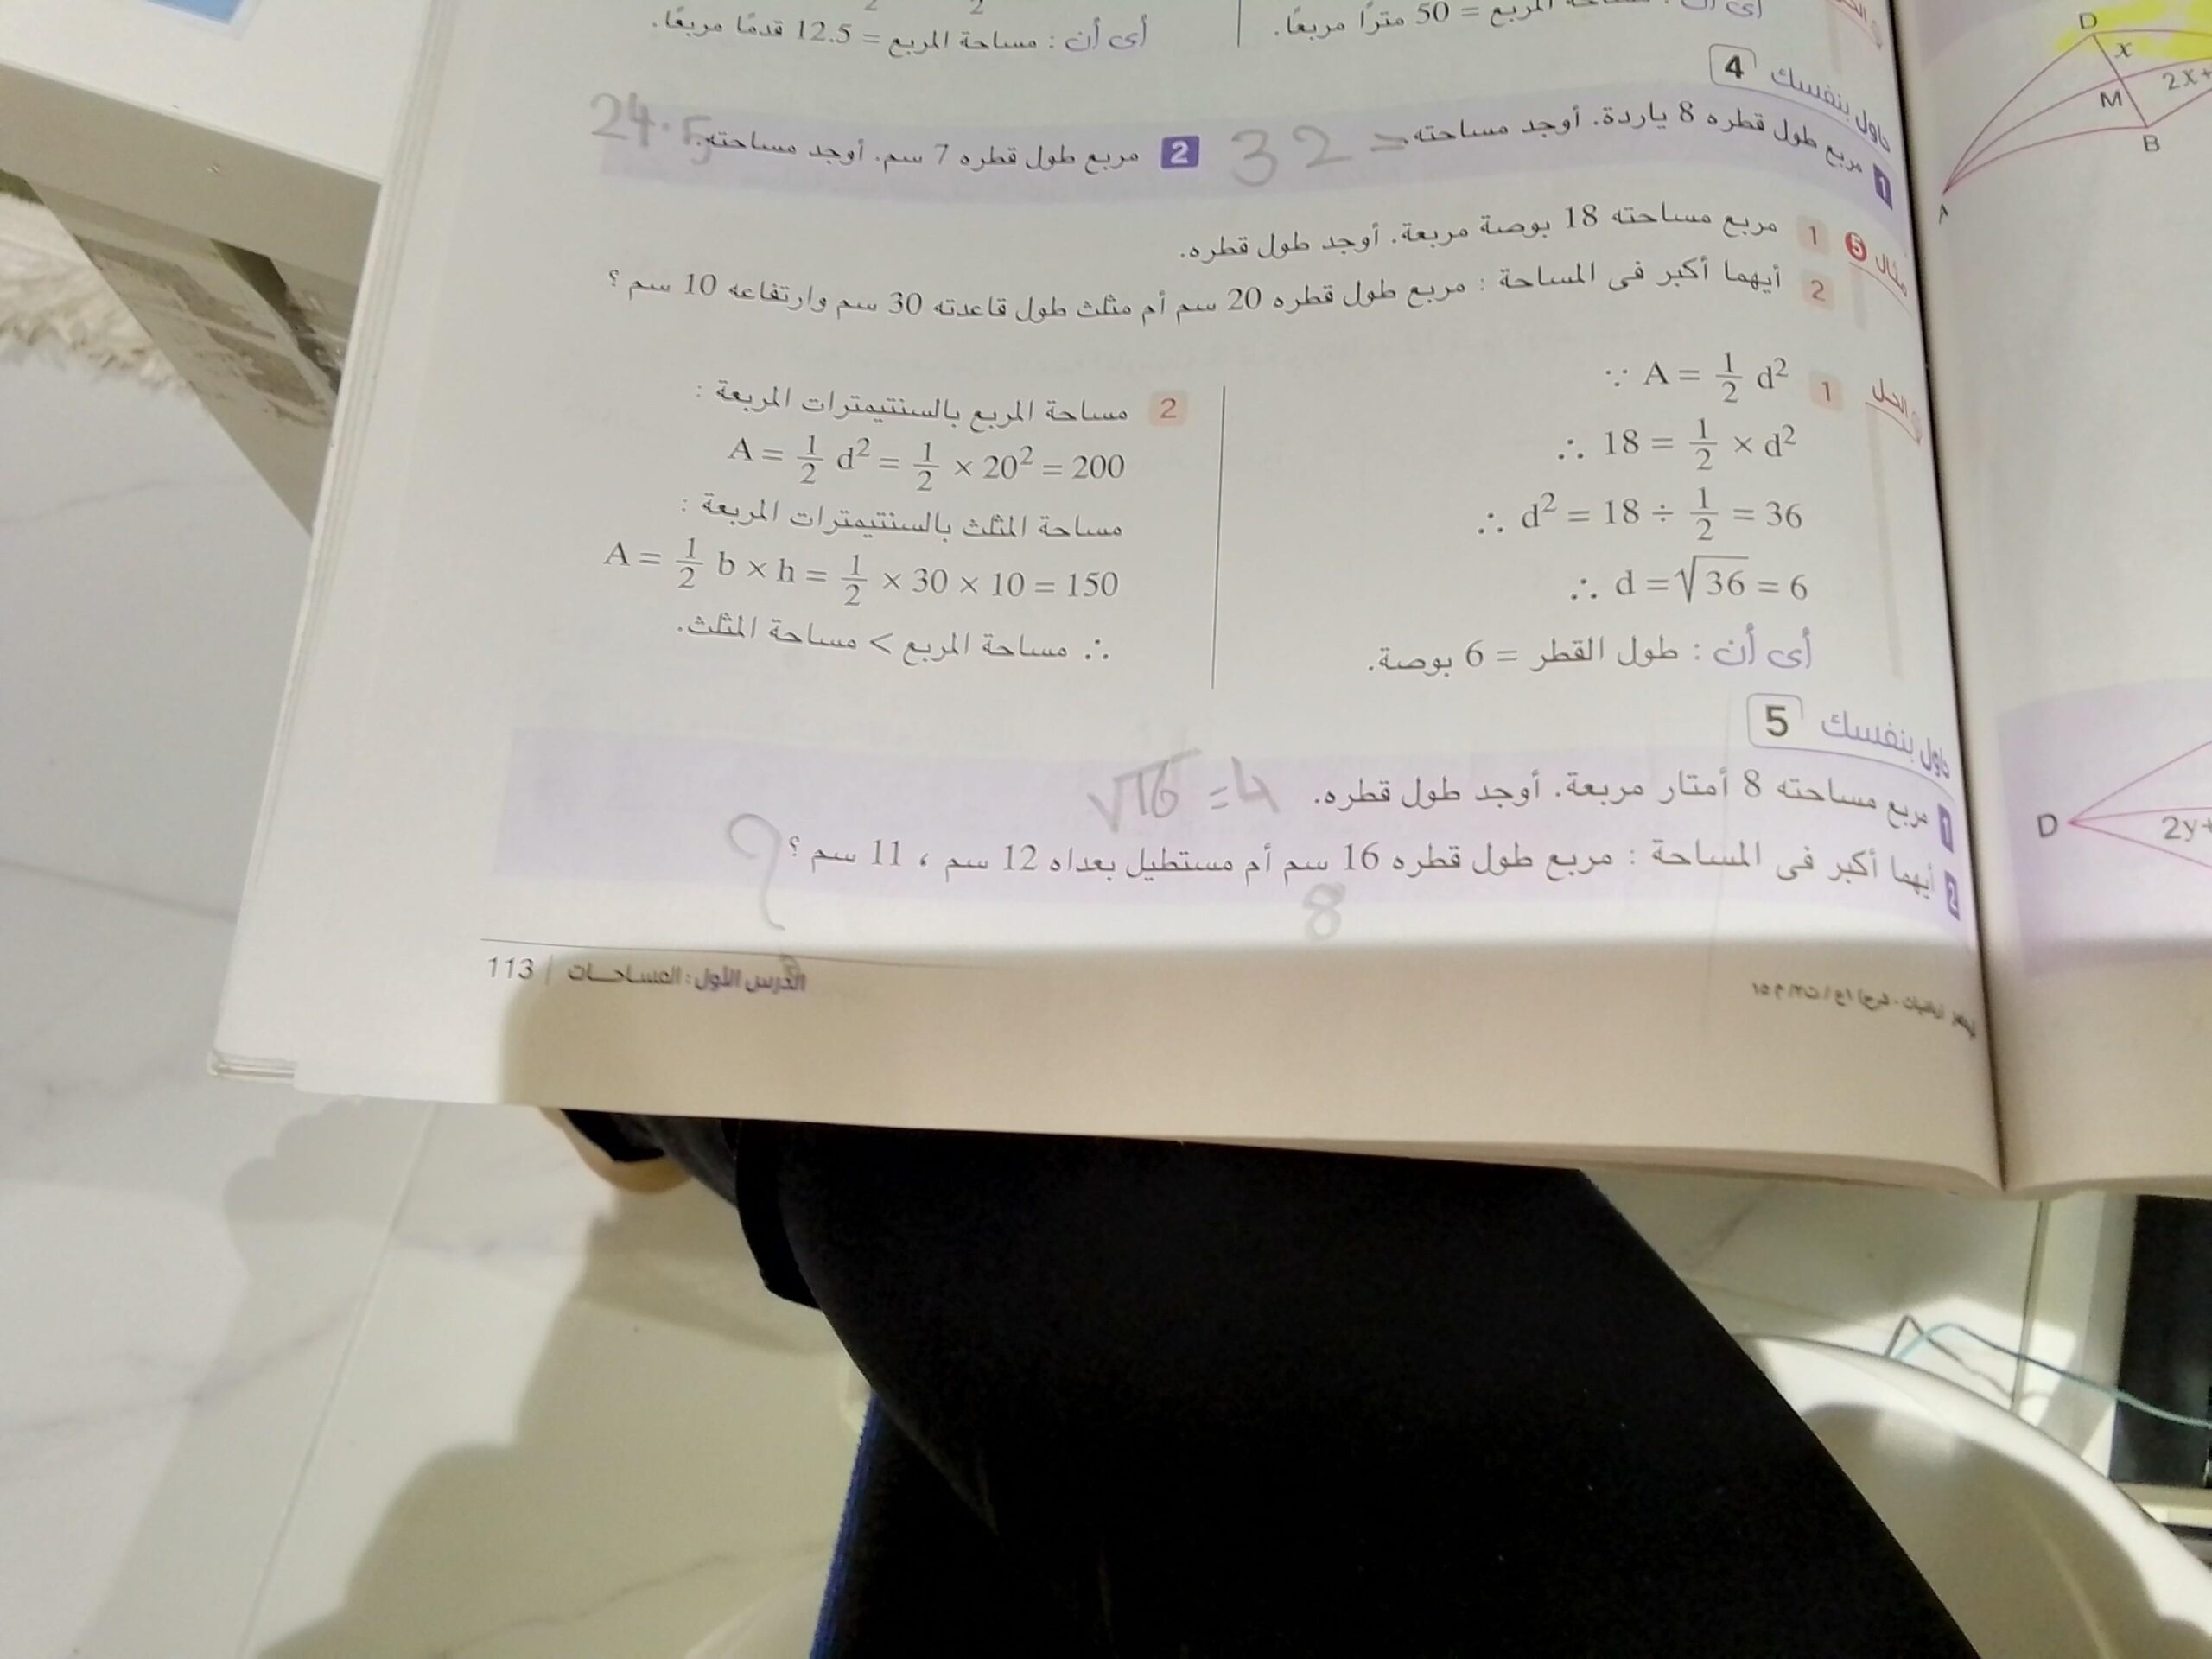 المربع = 50 مترًا مربعًا.
أى أن : مساحة المربع = 12.5 قدمًا مربعًا.
حاول بنفسك 4
1 مربع طول قطره 8 ياردة. أوجد مساحته. = 32
2 مربع طول قطره 7 سم. أوجد مساحته. 24.5
مثال 5
1 مربع مساحته 18 بوصة مربعة. أوجد طول قطره.
2 أيهما أكبر فى المساحة : مربع طول قطره 20 سم أم مثلث طول قاعدته 30 سم وارتفاعه 10 سم ؟
الحل
1 ∵ A = 1/2 d²
∴ 18 = 1/2 × d²
∴ d² = 18 ÷ 1/2 = 36
∴ d = √36 = 6
أى أن : طول القطر = 6 بوصة.
2 مساحة المربع بالسنتيمترات المربعة :
A = 1/2 d² = 1/2 × 20² = 200
مساحة المثلث بالسنتيمترات المربعة :
A = 1/2 b × h = 1/2 × 30 × 10 = 150
∴ مساحة المربع > مساحة المثلث.
حاول بنفسك 5
1 مربع مساحته 8 أمتار مربعة. أوجد طول قطره. √16 = 4
2 أيهما أكبر فى المساحة : مربع طول قطره 16 سم أم مستطيل بعداه 12 سم ، 11 سم ؟
8
الدرس الأول : المساحات | 113
D
x
2x+
M
B
A
D
2y+